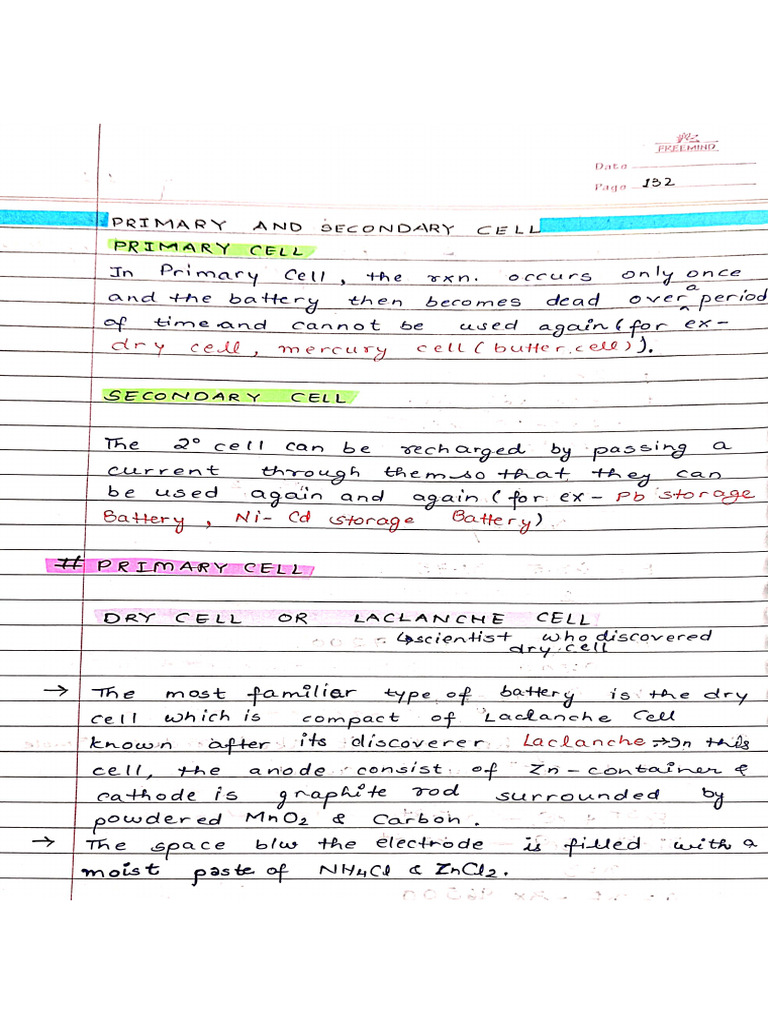 FREEMIND
Date
Page 132
PRIMARY AND SECONDARY CELL
PRIMARY CELL
In Primary Cell, the rxn. occurs only once
and the battery then becomes dead over a period
of time and cannot be used again (for ex-
dry cell, mercury cell (butter cell)).
SECONDARY CELL
The 2° cell can be recharged by passing a
current through them so that they can
be used again and again (for ex- Pb storage
Battery, Ni-Cd storage Battery)
# PRIMARY CELL
DRY CELL OR LACLANCHE CELL
↳ scientist who discovered
dry cell
→ The most familier type of battery is the dry
cell which is compact of Laclanche Cell
known after its discoverer Laclanche → In this
cell, the anode consist of Zn-container &
cathode is graphite rod surrounded by
powdered MnO2 & Carbon.
→ The space b/w the electrode is filled with a
moist paste of NH4Cl & ZnCl2.